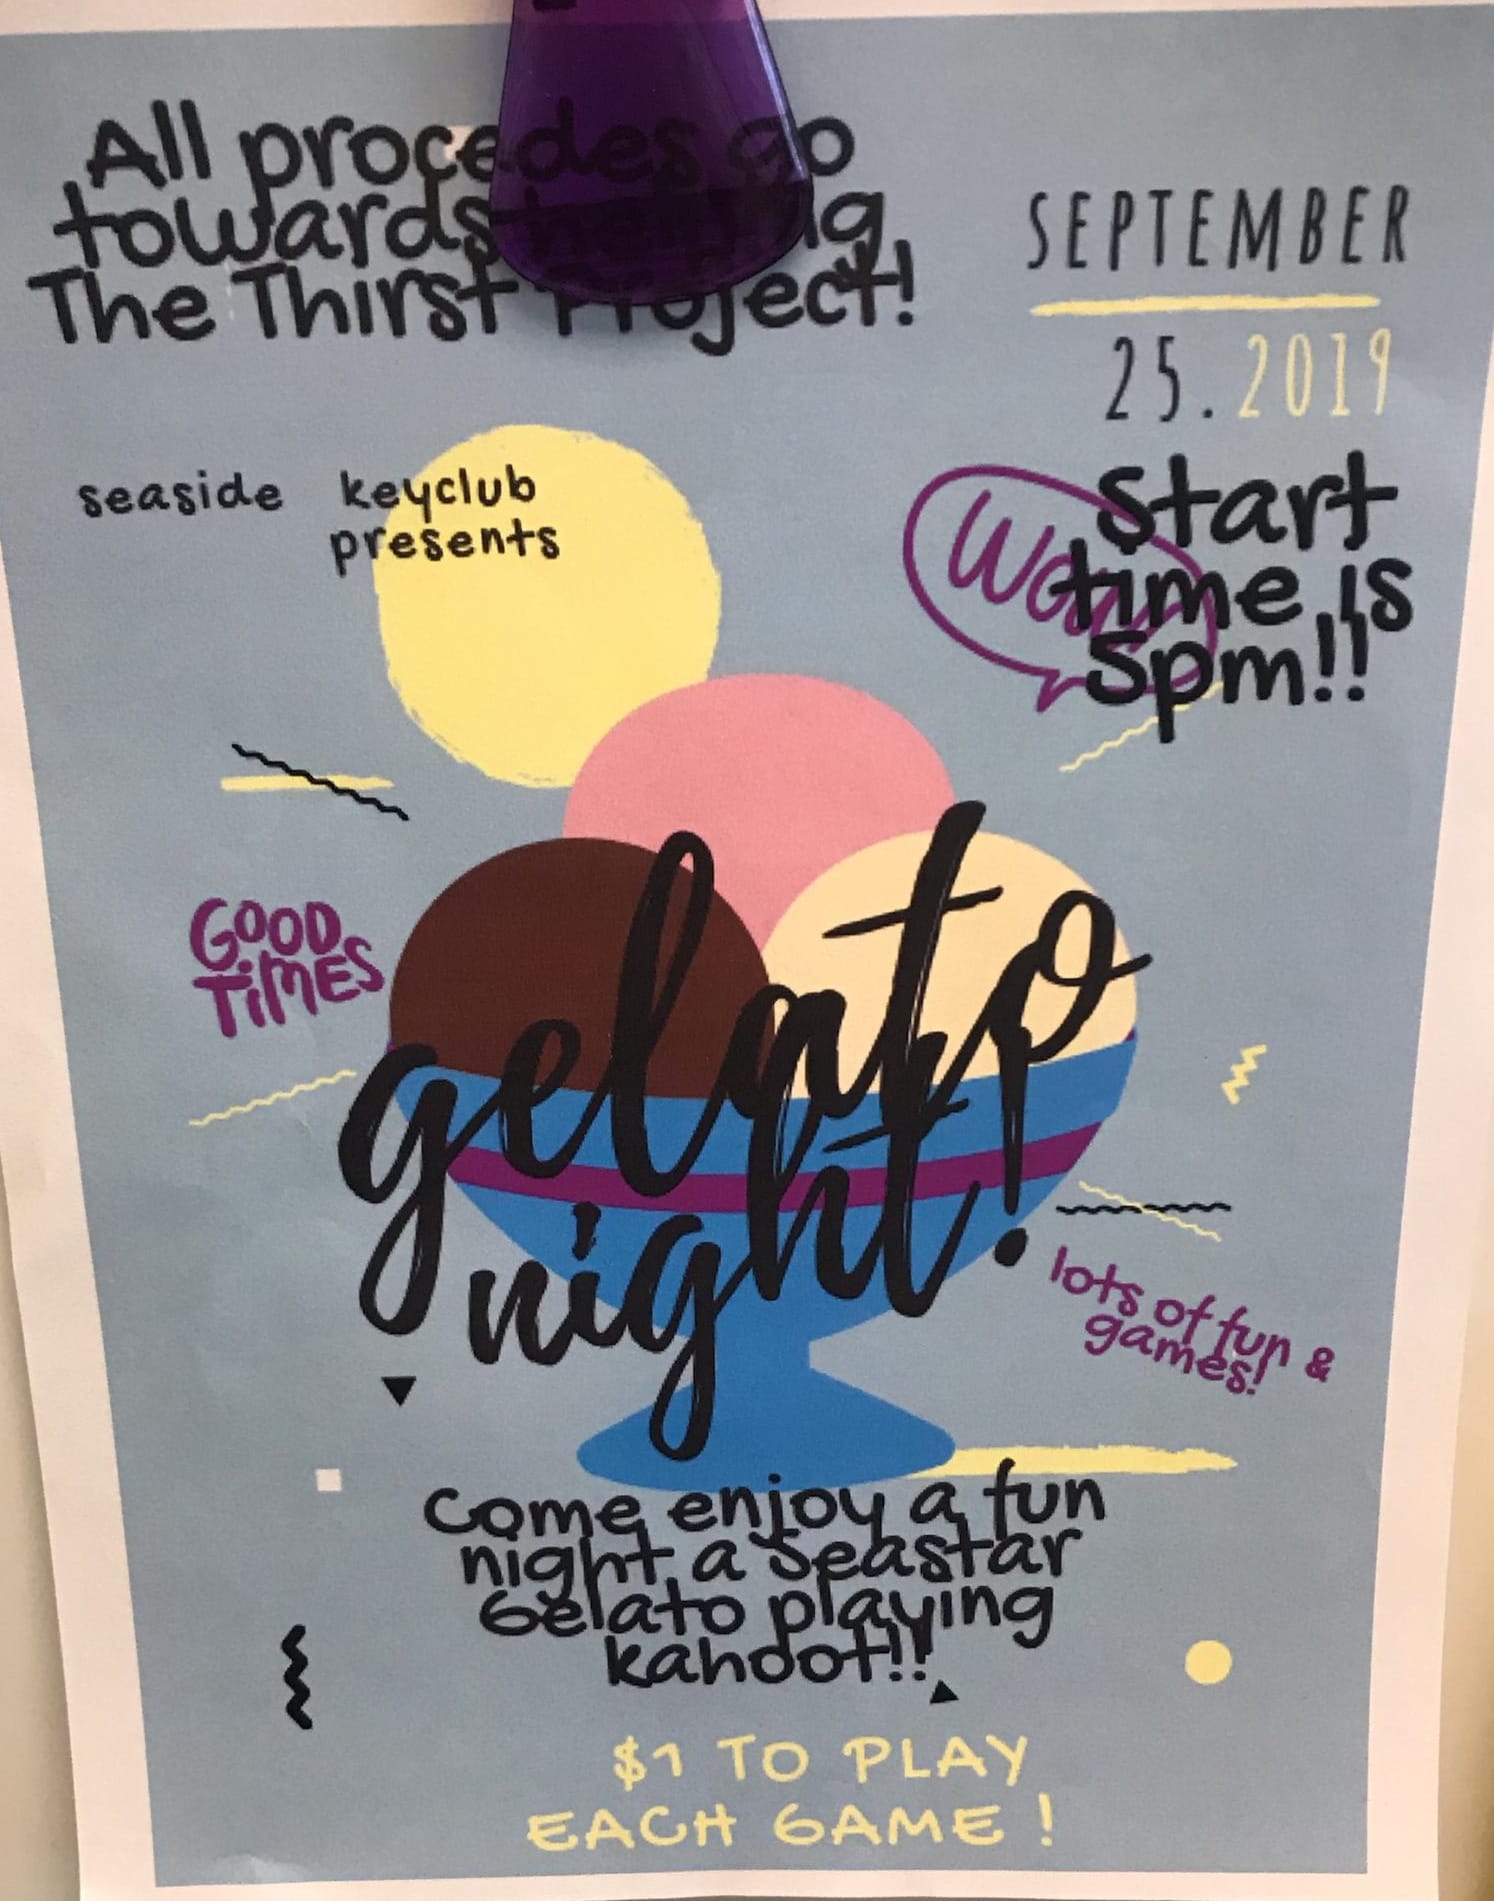 All procedes go
towards helping
The Thirst Project!
SEPTEMBER
25.2019
seaside keyclub
presents
Start
time is
5pm!!
GOOD
TIMES
gelato
night!
lots of fun &
games!
Come enjoy a fun
night a Seastar
Gelato playing
kahoot!!
$1 TO PLAY
EACH GAME!